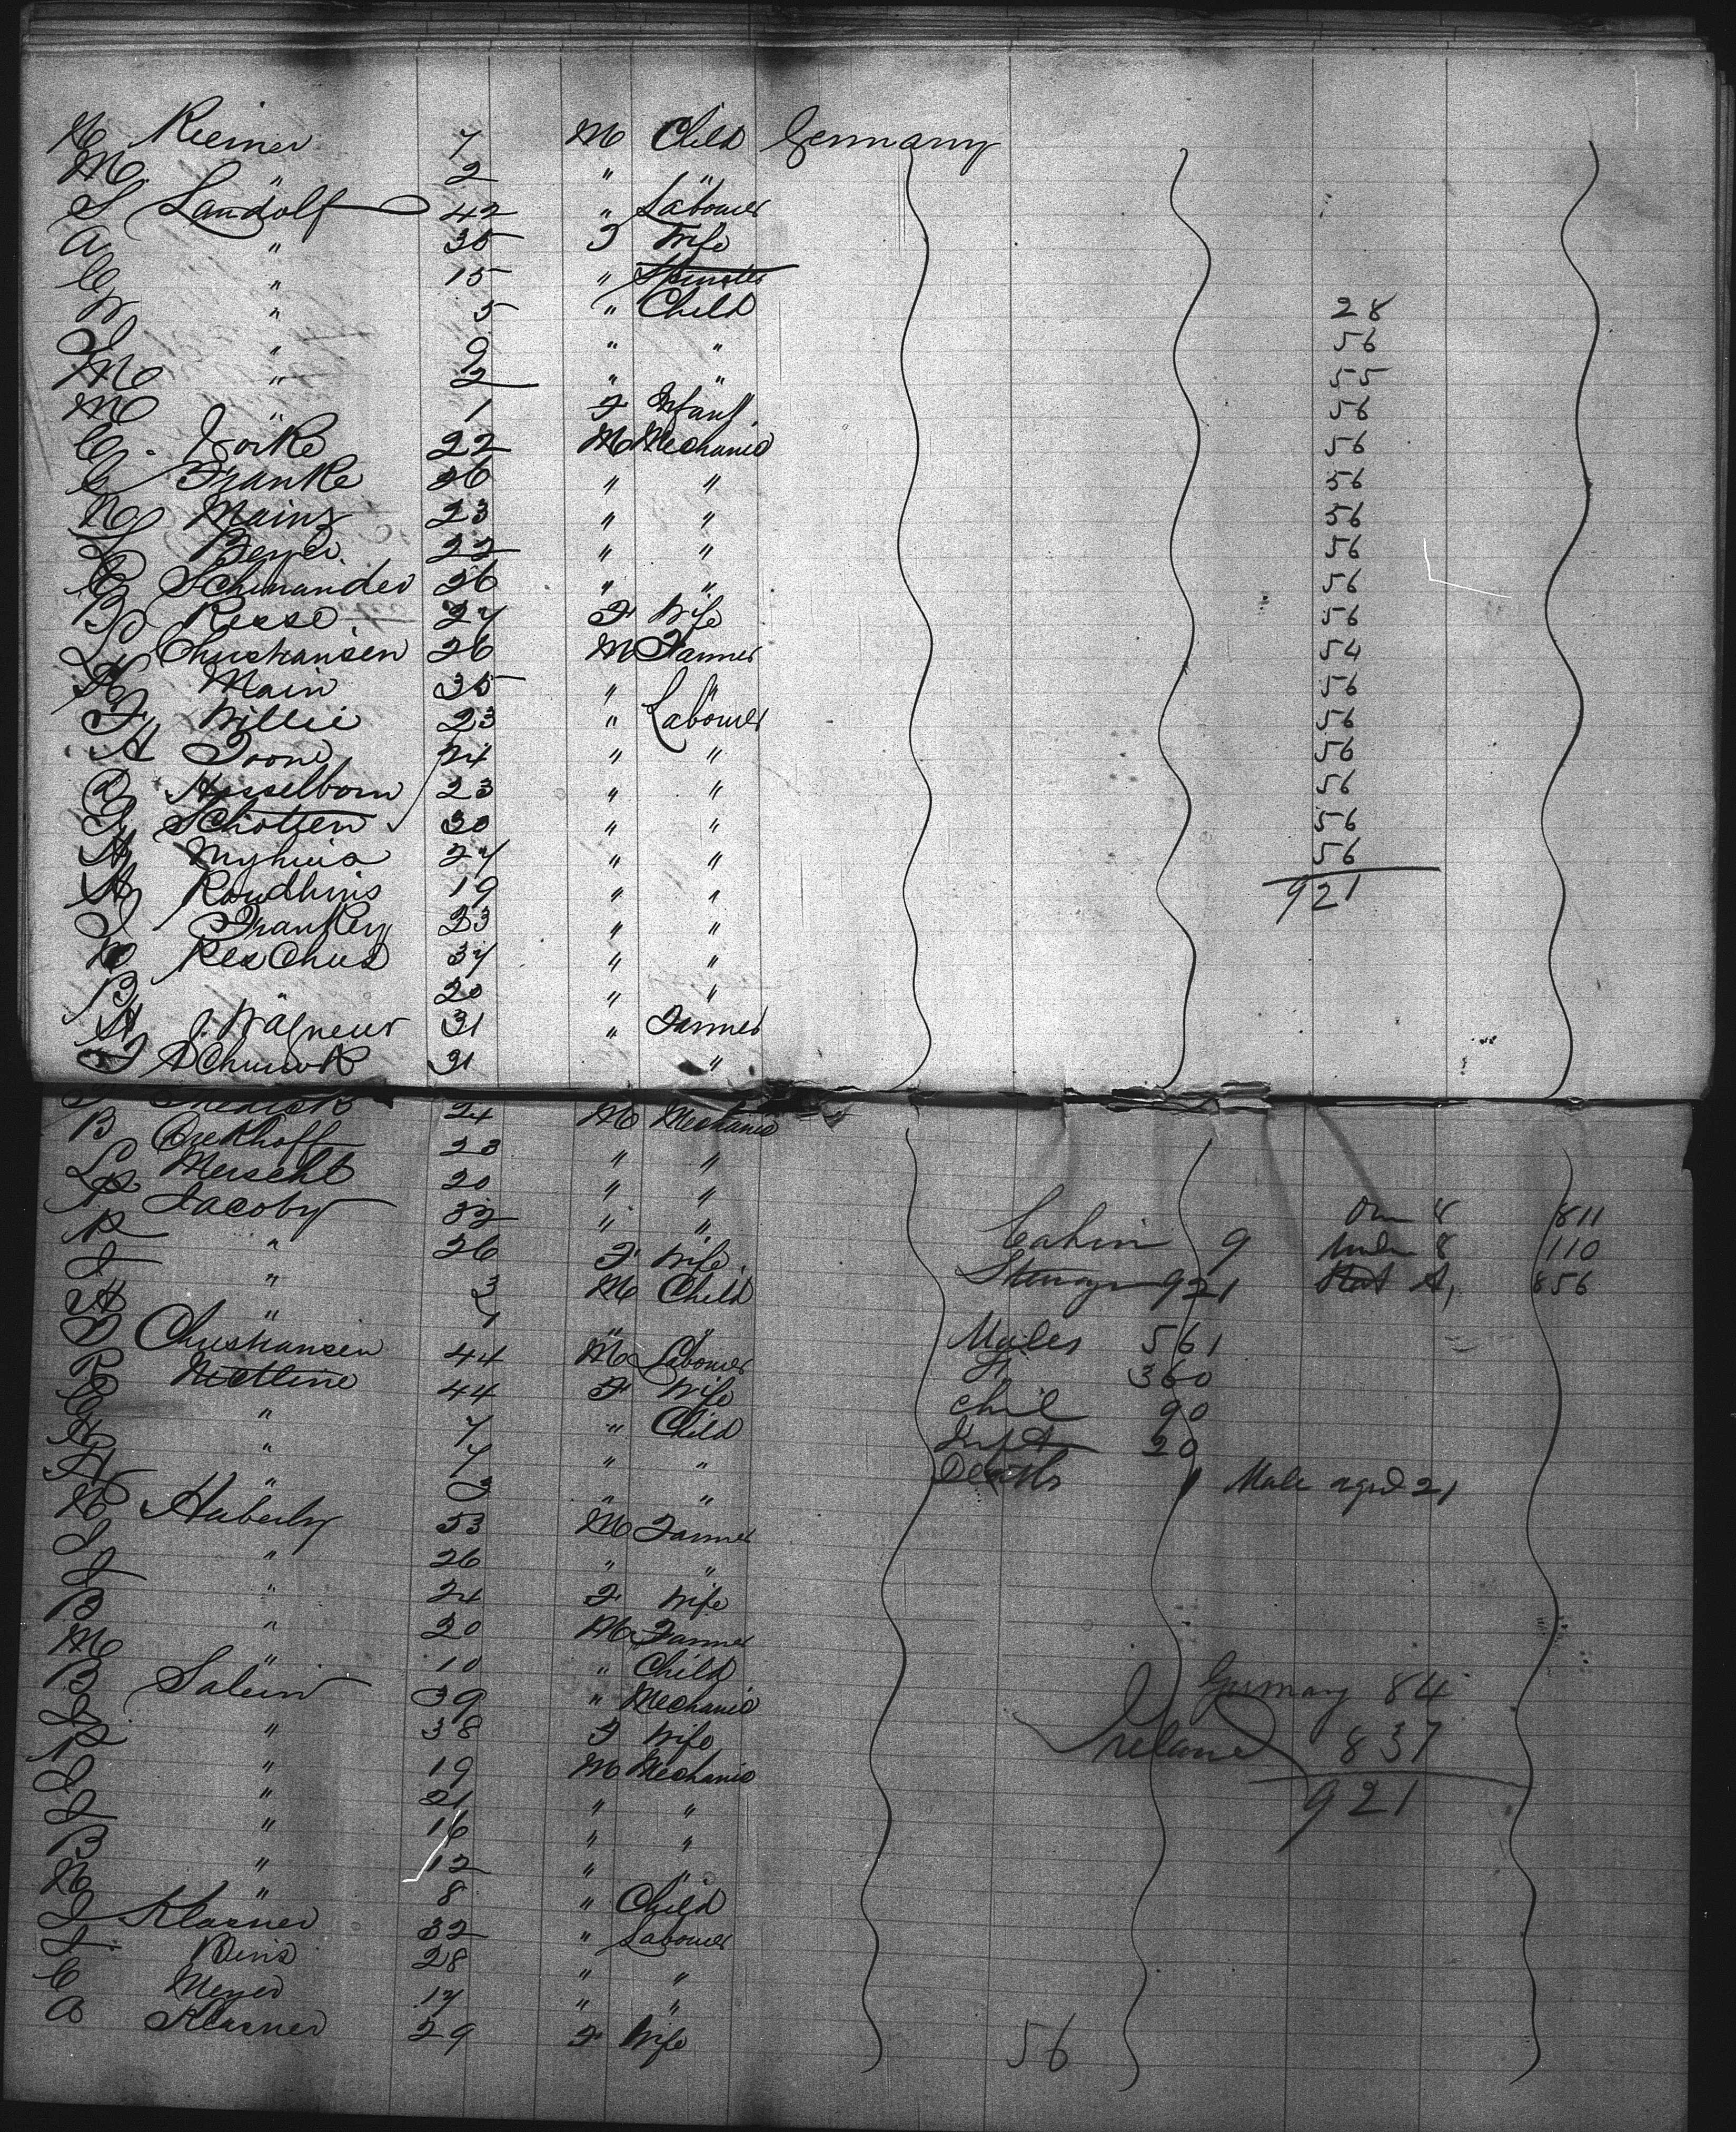 Reimer 7 M Child Germany
M " 2 " "
S Landolf 42 " Labourer
A " 35 F Wife
C " 15 " Spinster
W " 5 " Child 28
" 9 " " 56
M " 2 " " 55
M " 1 F Infant 56
C. 22 M Mechanic 56
C Franke 26 " " 56
N Mainz 23 " " 56
Beyer 22 " " 56
C Schmander 26 " " 56
B Resse 27 F Wife 56
L Christiansen 26 M Farmer 54
Main 35 " " 56
F Willie 23 " Labourer 56
A 24 " " 56
Hesselborn 23 " " 56
G Schotten 30 " " 56
A Nyhuis 27 " " 56
A 19 " " 921
I Frankey 23 " "
37 " "
B 20 " "
A J. Wagneur 31 " Farmer
31 "
24 M Mechanic
B Brekhoff 23 " "
L Merscht 20 " "
P Jacoby 32 " " Over 8 811
P " 26 F Wife. Cabin 9 Under 8 110
I " 3 M Child Steerage 921 Stat A, 856
A " 1 " "
D Christiansen 44 M Labourer Males 561
R Nettline 44 F Wife F 360
C " 7 " Child Chil 90
" 7 " " Inft 20
A " 3 " " Deaths 1 Male aged 21
Haberly 53 M Farmer
I " 26 " "
I " 24 F Wife
B " 20 M Farmer
M " 10 " Child
B Salein 39 " Mechanic Germany 84
I " 38 F Wife Ireland 837
P " 19 M Mechanic 921
I " 21 " "
I " 16 " "
B " 12 " "
N " 8 " Child
I Klasner 32 " Labourer
I 28 " "
C Meyer 17 " "
A Klasner 29 F Wife 56